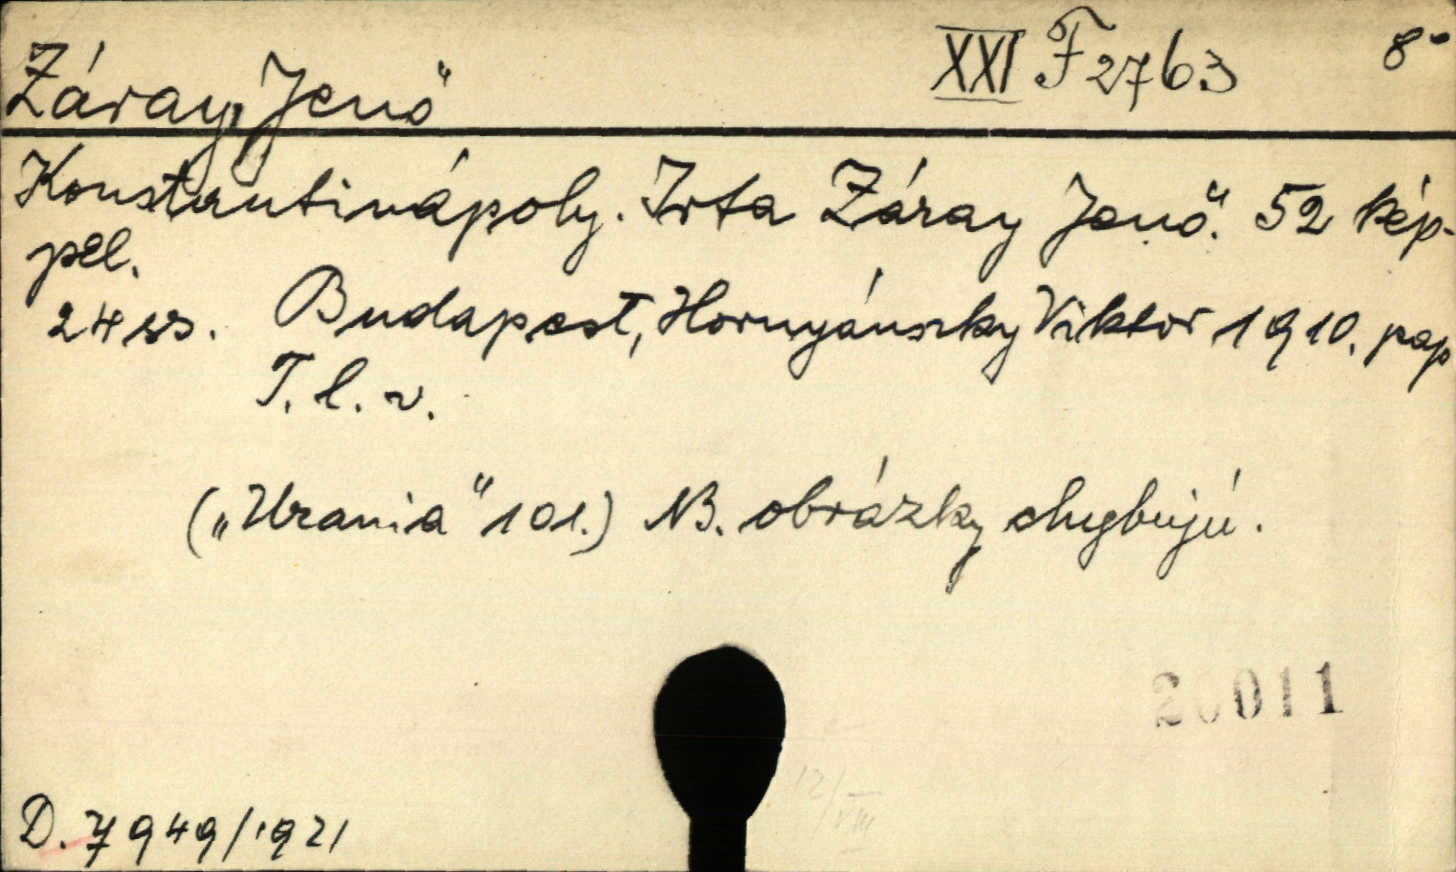 Záray, Jenő XXI F 2763 8°
Konstantinápoly. Irta Záray Jenő. 52 kép-
pel.
24 ss. Budapest, Hornyánszky Viktor 1910. pap
T. l. v.
(„Urania" 101.) NB. obrázky chybujú.
20011
12/VIII
D. 7949/1921